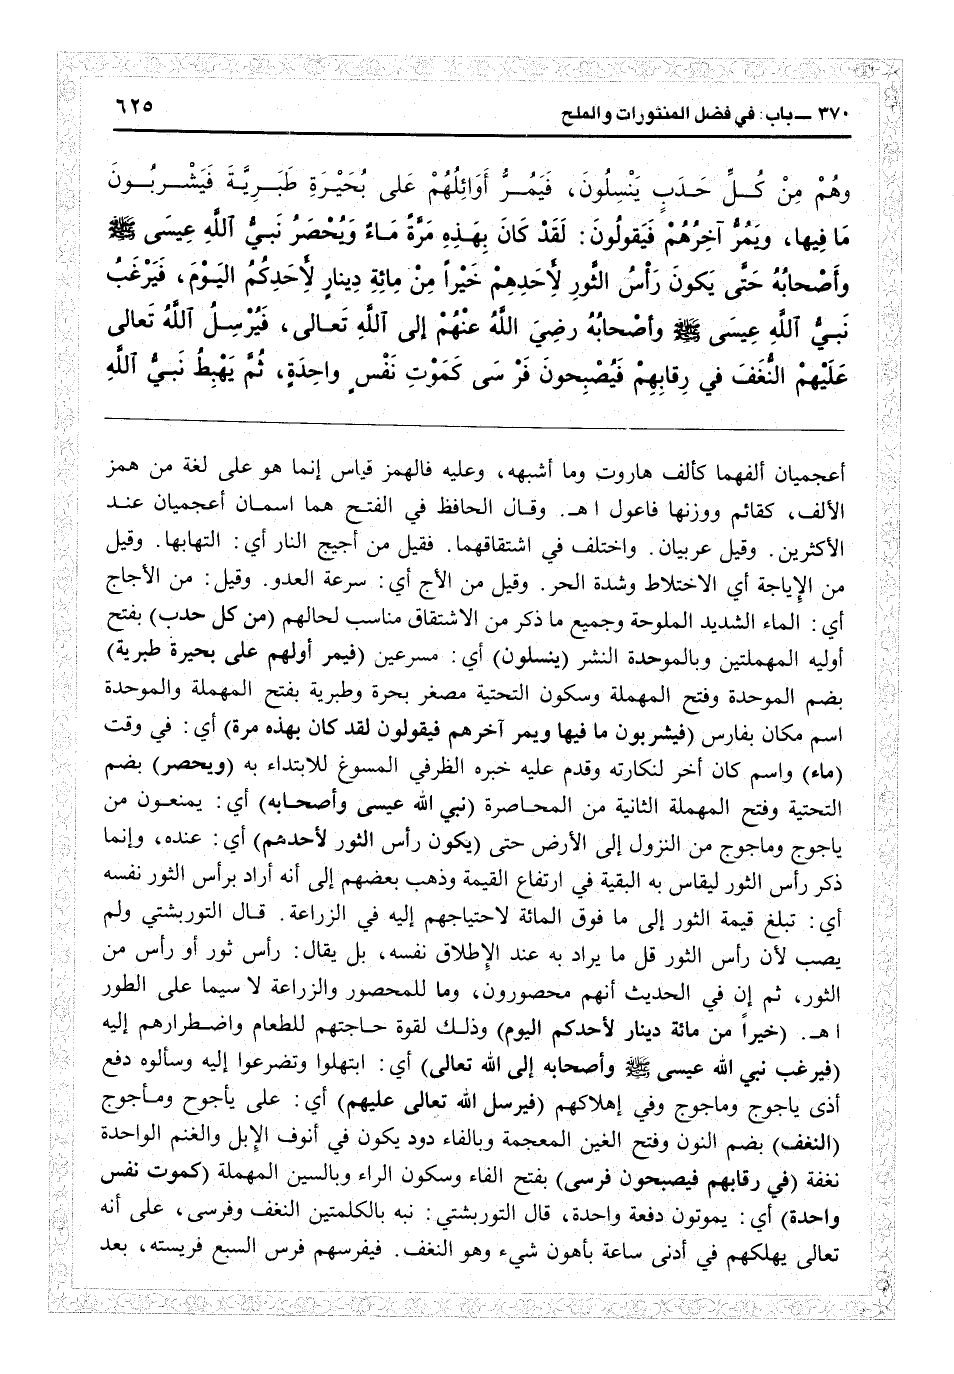 ٣٧٠ – باب: في فضل المنثورات والملح
٦٢٥
وهُمْ مِنْ كُلِّ حَدَبٍ يَنْسِلُونَ، فَيَمُرُّ أَوَائِلُهُمْ عَلى بُحَيْرَةِ طَبَرِيَّةَ فَيَشْرِبُونَ
مَا فِيها، ويَمُرُّ آخِرُهُمْ فَيَقولُونَ: لَقَدْ كَانَ بِهَذِهِ مَرَّةً مَاءٌ وَيُحْصَرُ نَبيُّ اللَّهِ عِيسَى ﷺ
وأَصْحابُهُ حَتَّى يَكونَ رَأْسُ الثَّورِ لأَحَدِهِمْ خَيْراً مِنْ مِائَةِ دِينارٍ لأَحَدِكُمُ اليَوْمَ، فَيَرْغَبُ
نَبيُّ اللَّهِ عِيسَى ﷺ وأصْحابُهُ رضِيَ اللَّهُ عنْهُمْ إلى اللَّهِ تَعالى، فَيُرْسِلُ اللَّهُ تَعالى
عَلَيْهمْ النُّغَفَ في رِقابِهِمْ فَيُصْبِحونَ فَرْسَى كَمَوْتِ نَفْسٍ واحِدَةٍ، ثُمَّ يَهْبِطُ نَبيُّ اللَّهِ
أعجميان ألفهما كألف هاروت وما أشبهه، وعليه فالهمز قياس إنما هو على لغة من همز
الألف، كقائم ووزنها فاعول اهـ. وقال الحافظ في الفتح هما اسمان أعجميان عند
الأكثرين. وقيل عربيان. واختلف في اشتقاقهما. فقيل من أجيج النار أي: التهابها. وقيل
من الإِياجة أي الاختلاط وشدة الحر. وقيل من الأج أي: سرعة العدو. وقيل: من الأجاج
أي: الماء الشديد الملوحة وجميع ما ذكر من الاشتقاق مناسب لحالهم (من كل حدب) بفتح
أوليه المهملتين وبالموحدة النشر (ينسلون) أي: مسرعين (فيمر أولهم على بحيرة طبرية)
بضم الموحدة وفتح المهملة وسكون التحتية مصغر بحرة وطبرية بفتح المهملة والموحدة
اسم مكان بفارس (فيشربون ما فيها ويمر آخرهم فيقولون لقد كان بهذه مرة) أي: في وقت
(ماء) واسم كان أخر لنكارته وقدم عليه خبره الظرفي المسوغ للابتداء به (ويحصر) بضم
التحتية وفتح المهملة الثانية من المحاصرة (نبي الله عيسى وأصحابه) أي: يمنعون من
ياجوج وماجوج من النزول إلى الأرض حتى (يكون رأس الثور لأحدهم) أي: عنده، وإنما
ذكر رأس الثور ليقاس به البقية في ارتفاع القيمة وذهب بعضهم إلى أنه أراد برأس الثور نفسه
أي: تبلغ قيمة الثور إلى ما فوق المائة لاحتياجهم إليه في الزراعة. قال التوربشتي ولم
يصب لأن رأس الثور قل ما يراد به عند الإِطلاق نفسه، بل يقال: رأس ثور أو رأس من
الثور، ثم إن في الحديث أنهم محصورون، وما للمحصور والزراعة لا سيما على الطور
اهـ. (خيراً من مائة دينار لأحدكم اليوم) وذلك لقوة حاجتهم للطعام واضطرارهم إليه
(فيرغب نبي الله عيسى ﷺ وأصحابه إلى الله تعالى) أي: ابتهلوا وتضرعوا إليه وسألوه دفع
أذى ياجوج وماجوج وفي إهلاكهم (فيرسل الله تعالى عليهم) أي: على يأجوج ومأجوج
(النغف) بضم النون وفتح الغين المعجمة وبالفاء دود يكون في أنوف الإِبل والغنم الواحدة
نغفة (في رقابهم فيصبحون فرسى) بفتح الفاء وسكون الراء وبالسين المهملة (كموت نفس
واحدة) أي: يموتون دفعة واحدة، قال التوربشتي: نبه بالكلمتين النغف وفرسى، على أنه
تعالى يهلكهم في أدنى ساعة بأهون شيء وهو النغف. فيفرسهم فرس السبع فريسته، بعد